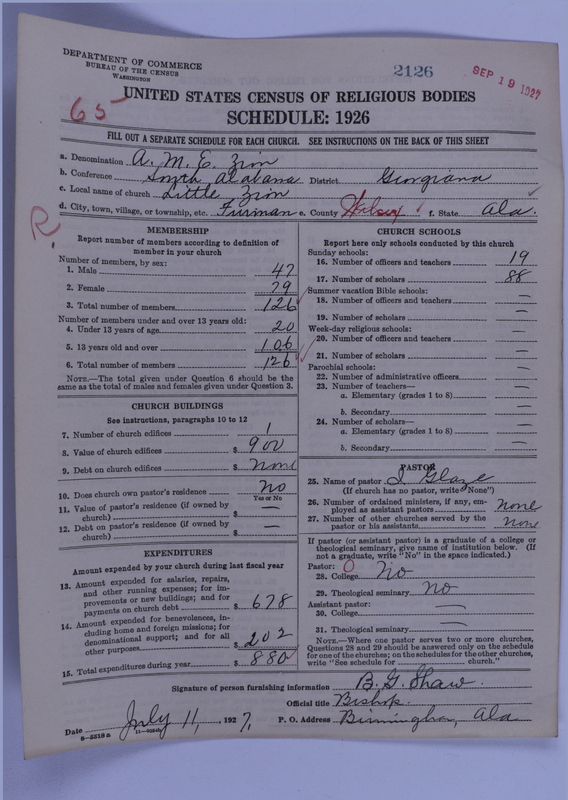 DEPARTMENT OF COMMERCE
BUREAU OF THE CENSUS
WASHINGTON
2126
SEP 19 1927
65
UNITED STATES CENSUS OF RELIGIOUS BODIES
SCHEDULE: 1926
FILL OUT A SEPARATE SCHEDULE FOR EACH CHURCH. SEE INSTRUCTIONS ON THE BACK OF THIS SHEET
a. Denomination A. M. E. Zion
b. Conference South Alabama District Georgiana
c. Local name of church Little Zion
d. City, town, village, or township, etc. Furman e. County Wilcox f. State Ala.
R.
MEMBERSHIP
Report number of members according to definition of
member in your church
Number of members, by sex:
1. Male 47
2. Female 79
3. Total number of members 126
Number of members under and over 13 years old:
4. Under 13 years of age 20
5. 13 years old and over 106
6. Total number of members 126
NOTE.—The total given under Question 6 should be the
same as the total of males and females given under Question 3.
CHURCH BUILDINGS
See instructions, paragraphs 10 to 12
7. Number of church edifices 1
8. Value of church edifices $ 900
9. Debt on church edifices $ none
10. Does church own pastor's residence no
Yes or No
11. Value of pastor's residence (if owned by
church) $ —
12. Debt on pastor's residence (if owned by
church) $ —
EXPENDITURES
Amount expended by your church during last fiscal year
13. Amount expended for salaries, repairs,
and other running expenses; for im-
provements or new buildings; and for
payments on church debt $ 678
14. Amount expended for benevolences, in-
cluding home and foreign missions; for
denominational support; and for all
other purposes $ 202
15. Total expenditures during year $ 880
CHURCH SCHOOLS
Report here only schools conducted by this church
Sunday schools:
16. Number of officers and teachers 19
17. Number of scholars 88
Summer vacation Bible schools:
18. Number of officers and teachers —
19. Number of scholars —
Week-day religious schools:
20. Number of officers and teachers —
21. Number of scholars —
Parochial schools:
22. Number of administrative officers —
23. Number of teachers—
a. Elementary (grades 1 to 8) —
b. Secondary —
24. Number of scholars—
a. Elementary (grades 1 to 8) —
b. Secondary —
PASTOR
25. Name of pastor I Glaze
(If church has no pastor, write "None")
26. Number of ordained ministers, if any, em-
ployed as assistant pastors none
27. Number of other churches served by the
pastor or his assistants none
If pastor (or assistant pastor) is a graduate of a college or
theological seminary, give name of institution below. (If
not a graduate, write "No" in the space indicated.)
Pastor: O
28. College No
29. Theological seminary No
Assistant pastor:
30. College —
31. Theological seminary —
NOTE.—Where one pastor serves two or more churches,
Questions 28 and 29 should be answered only on the schedule
for one of the churches; on the schedules for the other churches,
write "See schedule for church."
Signature of person furnishing information B. G. Shaw
Official title Bishop.
Date July 11, 1927, P. O. Address Birmingham, Ala
8-5518a